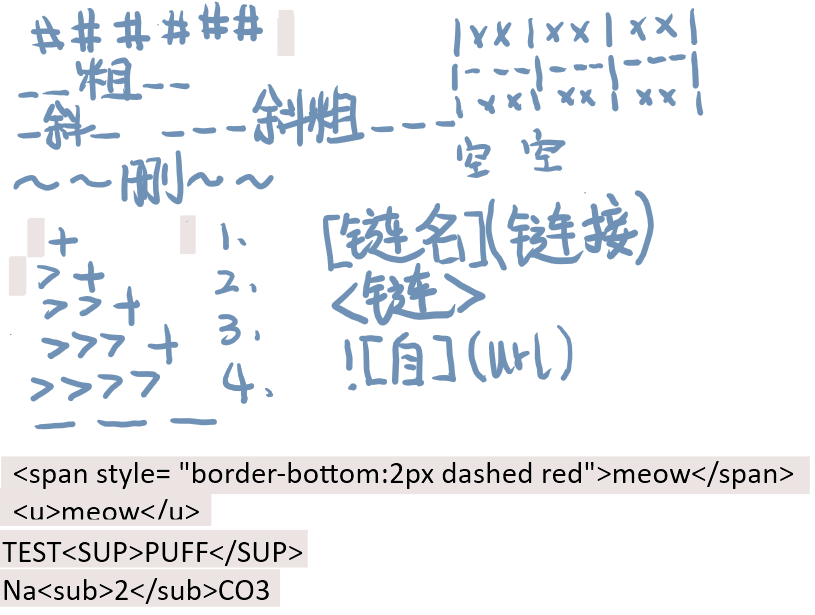 ######
__粗__
_斜_ ___斜粗___
~~删~~
+
> +
>> +
>>> +
>>>>
___
1、
2、
3、
4、
|xx|xx|xx|
|---|---|---|
|xx|xx|xx|
空 空
[链名](链接)
<链>
![自](url)
<span style= "border-bottom:2px dashed red">meow</span>
<u>meow</u>
TEST<SUP>PUFF</SUP>
Na<sub>2</sub>CO3